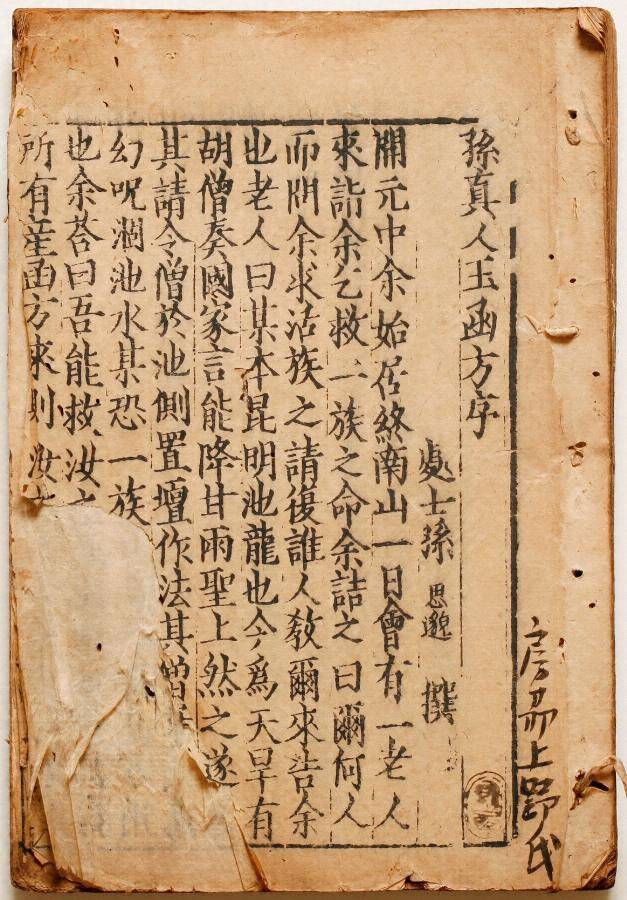 房刕上野氏
孫真人玉函方序
處士孫 思邈 撰
開元中余始居終南山一日會有一老人
來詣余乞救一族之命余詰之曰爾何人
而問余求活族之請復誰人教爾來告余
也老人曰某本昆明池龍也今爲天旱有
胡僧奏國家言能降甘雨聖上然之遂
其請令僧於池側置壇作法其僧
幻呪涸池水某恐一族
也余荅曰吾能救汝
所有函方來則汝